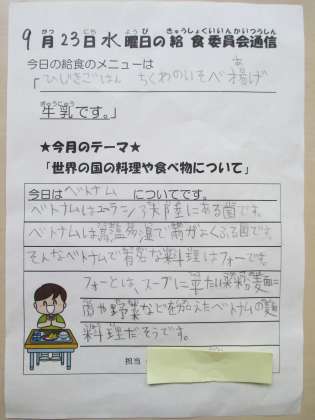 9月23日水曜日の給食委員会通信
今日の給食のメニューは
「ひじきごはん ちくわのいそべ揚げ
牛乳です。」
★今月のテーマ★
「世界の国の料理や食べ物について」
今日はベトナム についてです。
ベトナムはユーラシア大陸にある国です。
ベトナムは高温多湿で雨がよくふる国です。
そんなベトナムで有名な料理はフォーです。
フォーとは、スープに平たい米粉麺に
肉や野菜などを加えたベトナムの麺
料理だそうです。
担当